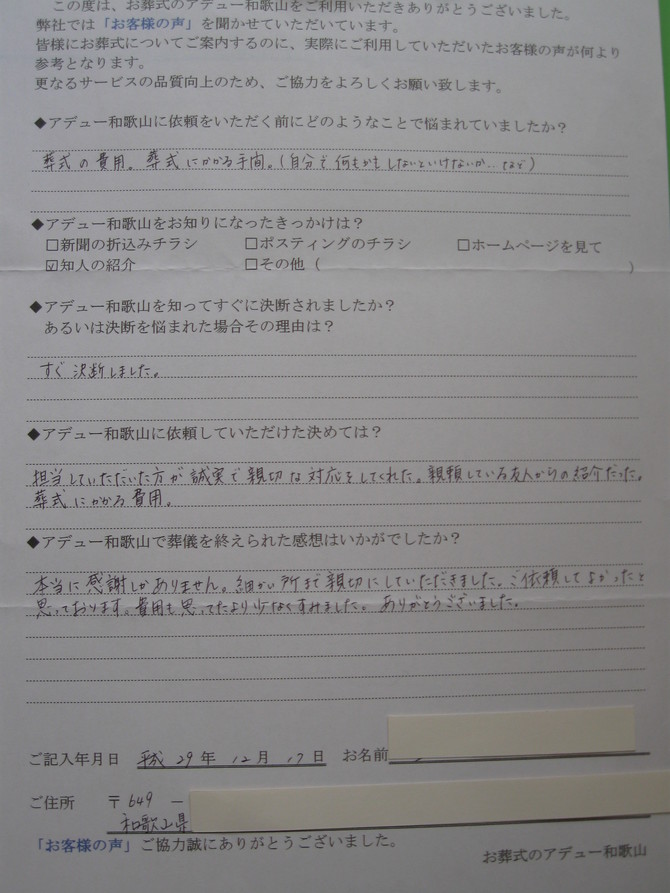 この度は、お葬式のアデュー和歌山をご利用いただきありがとうございました。
弊社では「お客様の声」を聞かせていただいています。
皆様にお葬式についてご案内するのに、実際にご利用していただいたお客様の声が何より
参考となります。
更なるサービスの品質向上のため、ご協力をよろしくお願い致します。
◆アデュー和歌山に依頼をいただく前にどのようなことで悩まれていましたか？
葬式の費用。葬式にかかる手間。(自分で何もかもしないといけないか‥など)
◆アデュー和歌山をお知りになったきっかけは？
□新聞の折込みチラシ □ポスティングのチラシ □ホームページを見て
☑知人の紹介 □その他（ ）
◆アデュー和歌山を知ってすぐに決断されましたか？
あるいは決断を悩まれた場合その理由は？
すぐ決断しました。
◆アデュー和歌山に依頼していただけた決めては？
担当していただいた方が誠実で親切な対応をしてくれた。親頼している友人からの紹介だった。
葬式にかかる費用。
◆アデュー和歌山で葬儀を終えられた感想はいかがでしたか？
本当に感謝しかありません。細かい所まで親切にしていただきました。ご依頼してよかったと
思っております。費用も思ってたより少なくすみました。ありがとうございました。
ご記入年月日 平成 29年 12月 17日 お名前
ご住所 〒649 －
和歌山県
「お客様の声」ご協力誠にありがとうございました。
お葬式のアデュー和歌山